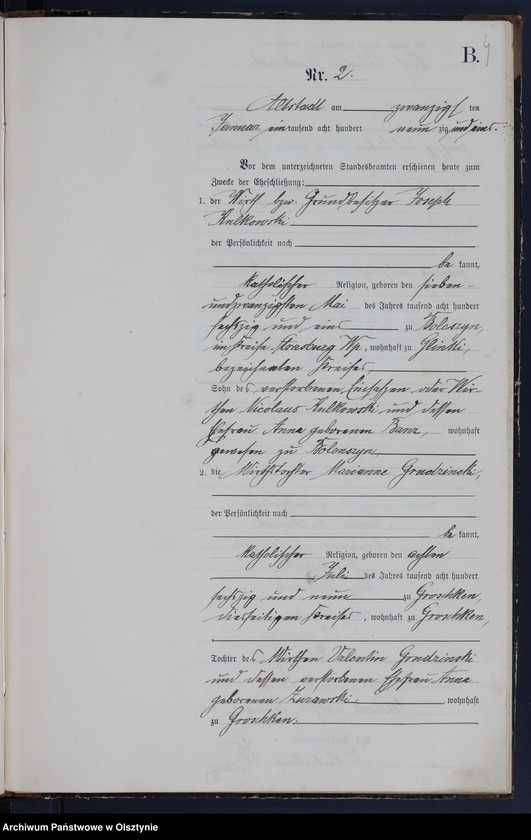 B. 4
Nr. 2.
Altstadt am zwanzigsten
Januar eintausend acht hundert neunzig und eins.
Vor dem unterzeichneten Standesbeamten erschienen heute zum
Zwecke der Eheschließung:
1. der Wirth bzw. Grundbesitzer Joseph
Kulkowski
der Persönlichkeit nach
be kannt,
katholischer Religion, geboren den sieben-
undzwanzigsten Mai des Jahres tausend acht hundert
sechszig und eins zu
im Kreise Strasburg Wp, wohnhaft zu Glinki,
bezeichneten Kreises,
Sohn des verstorbenen Einsassen oder Wir-
then Nicolaus Kulkowski und dessen
Ehefrau Anna geborenen Banz, wohnhaft
gewesen zu
2. die Wirthstochter Marianne Grudzinski,
der Persönlichkeit nach
be kannt,
katholischer Religion, geboren den achten
Juli des Jahres tausend acht hundert
sechszig und neun zu Groschken,
diesseitigen Kreises, wohnhaft zu Groschken,
Tochter des Wirthen Valentin Grudzinski
und dessen verstorbenen Ehefrau Anna
geborenen Zurawski, wohnhaft
zu Groschken.
Archiwum Państwowe w Olsztynie